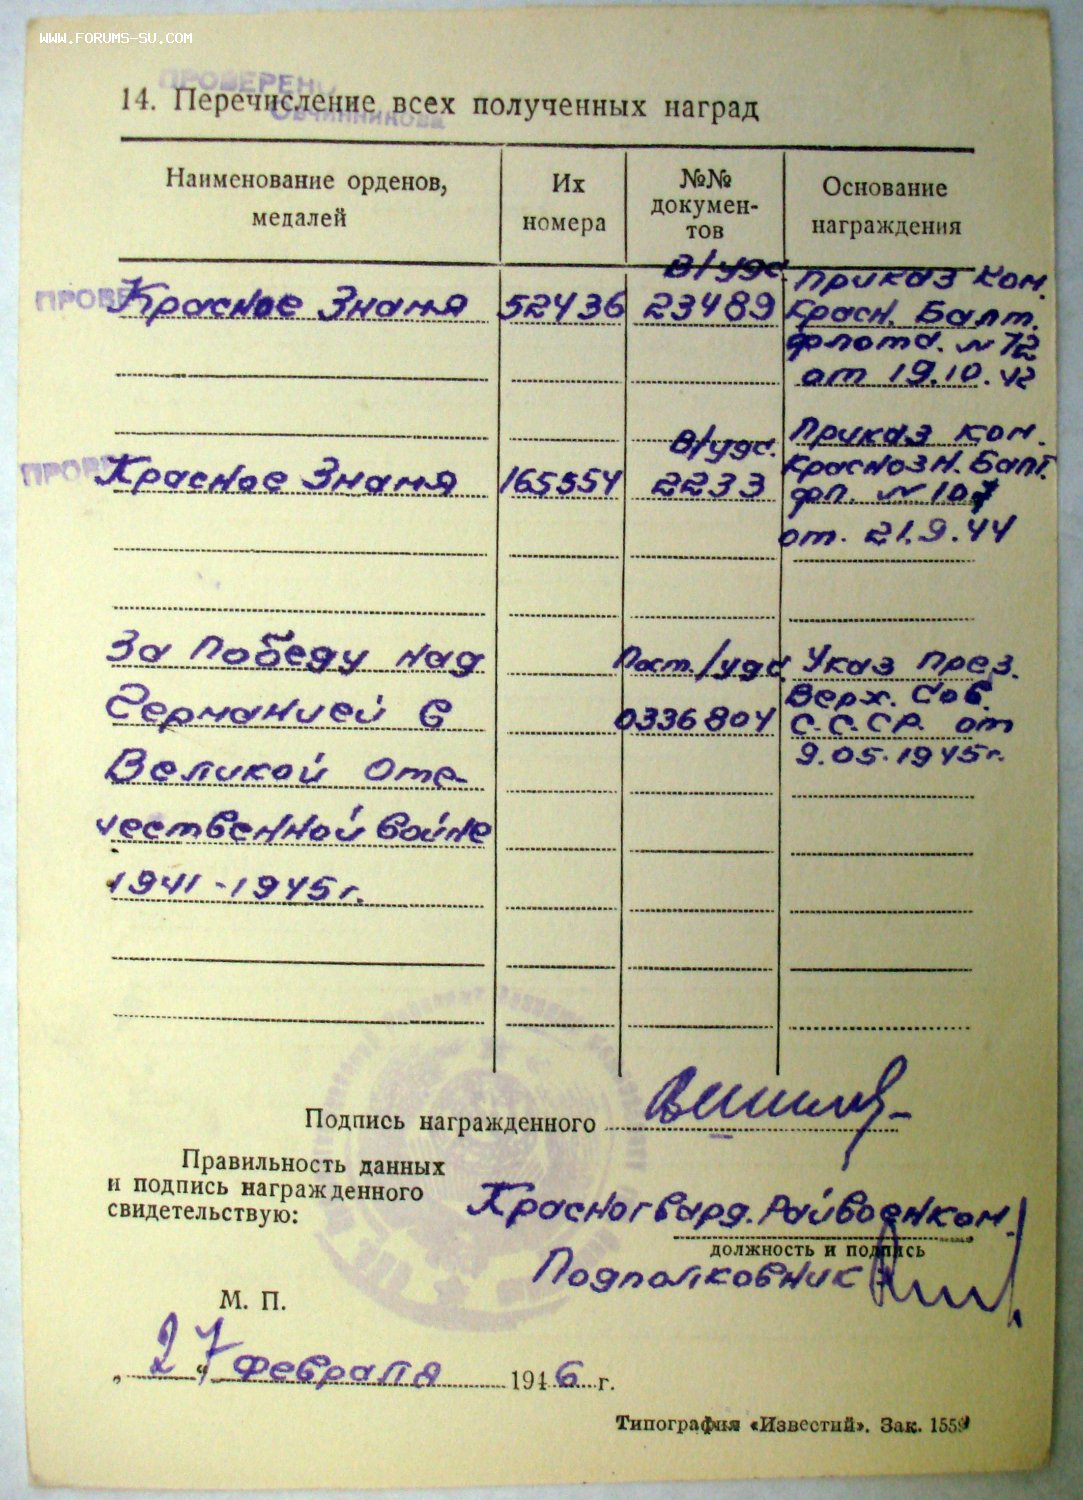 WWW.FORUMS-SU.COM
ПРОВЕРЕНО
Овчинникова
14. Перечисление всех полученных наград
Наименование орденов, медалей
Их номера
№№ докумен-тов
Основание награждения
ПРОВЕ
Красное Знамя 52436 В/удс. 23489 Приказ ком.
Красн. Балт.
флота. № 72
от 19.10.42
ПРОВЕ
Красное Знамя 165554 В/удс. 2233 Приказ ком.
Краснозн. Балт.
фл. № 107
от. 21.9.44
За Победу над Пост./удс. Указ През.
Германией в 0336804 Верх. Сов.
Великой Оте- С.С.С.Р. от
чественной войне 9.05.1945г.
1941-1945г.
Подпись награжденного
Правильность данных
и подпись награжденного
свидетельствую:
Красногвард. Райвоенком.
должность и подпись
Подполковник
М. П.
„27" февраля 1946 г.
Типография «Известий». Зак. 1559